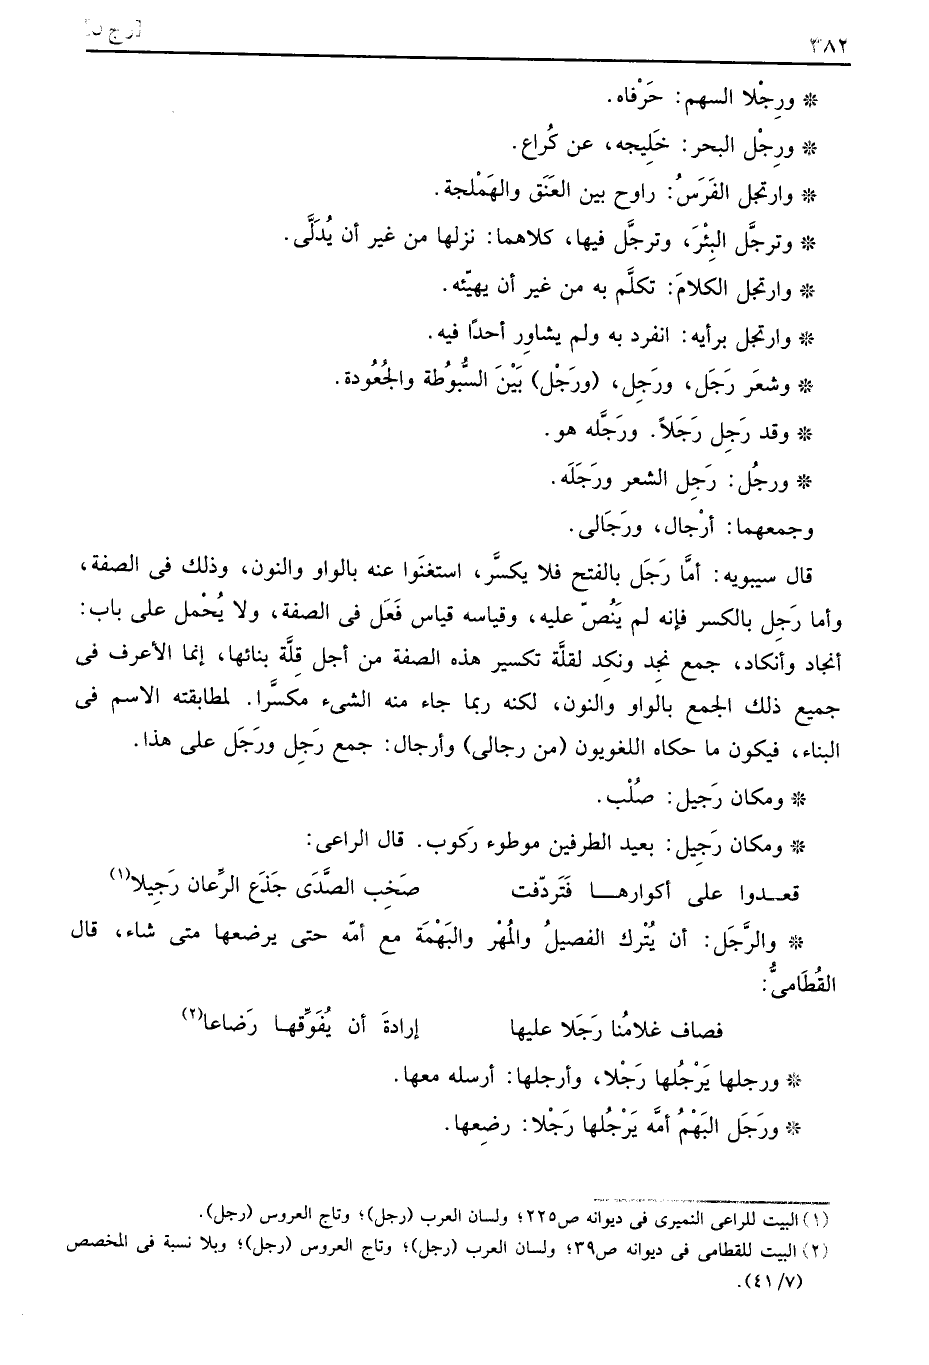 ٣٨٢
[ر ج ل]
* ورِجْلا السهم: حَرْفاه.
* ورِجْل البحر: خَلِيجه، عن كُراع.
* وارتجل الفَرَسُ: راوح بين العَنَق والهَمْلجة.
* وترجَّل البِئْرَ، وترجَّل فيها، كلاهما: نزلها من غير أن يُدَلَّى.
* وارتجل الكلامَ: تكلَّم به من غير أن يهيّئه.
* وارتجل برأيه: انفرد به ولم يشاور أحدًا فيه.
* وشعَر رَجَل، ورَجِل، (ورَجْل) بَيْنَ السُّبُوطة والجُعُودة.
* وقد رَجِل رَجَلاً. ورَجَّله هو.
* ورجُل: رَجِل الشعر ورَجَلَه.
وجمعهما: أرْجال، ورَجَالى.
قال سيبويه: أمَّا رَجَل بالفتح فلا يكسَّر، استغنَوا عنه بالواو والنون، وذلك فى الصفة،
وأما رَجِل بالكسر فإنه لم يَنُصّ عليه، وقياسه قياس فَعَل فى الصفة، ولا يُحْمل على باب:
أنجاد وأنكاد، جمع نجِد ونكِد لقلَّة تكسير هذه الصفة من أجل قِلَّة بنائها، إنما الأعرف فى
جميع ذلك الجمع بالواو والنون، لكنه ربما جاء منه الشىء مكسَّرا. لمطابقته الاسم فى
البناء، فيكون ما حكاه اللغويون (من رجالى) وأرجال: جمع رَجِل ورَجَل على هذا.
* ومكان رَجيل: صُلْب.
* ومكان رَجِيل: بعيد الطرفين موطوء رَكوب. قال الراعى:
قعــدوا على أكوارهــا فَتَردّفت صَخِب الصَّدَى جَذَع الرِّعان رَجيلا(١)
* والرَّجَل: أن يُتْرك الفصيلُ والمُهْر والبَهْمَة مع أمّه حتى يرضعها متى شاء، قال
القُطَامىُّ:
فصاف غلامُنا رَجَلا عليها إرادةَ أن يُفَوِّقهـا رَضاعا(٢)
* ورجلها يَرْجُلها رَجْلا، وأرجلها: أرسله معها.
* ورَجَل البَهْمُ أمَّه يَرْجُلها رَجْلا: رضِعها.
(١) البيت للراعى النميرى فى ديوانه ص٢٢٥؛ ولسان العرب (رجل)؛ وتاج العروس (رجل).
(٢) البيت للقطامى فى ديوانه ص٣٩؛ ولسان العرب (رجل)؛ وتاج العروس (رجل)؛ وبلا نسبة فى المخصص
(٧/ ٤١).